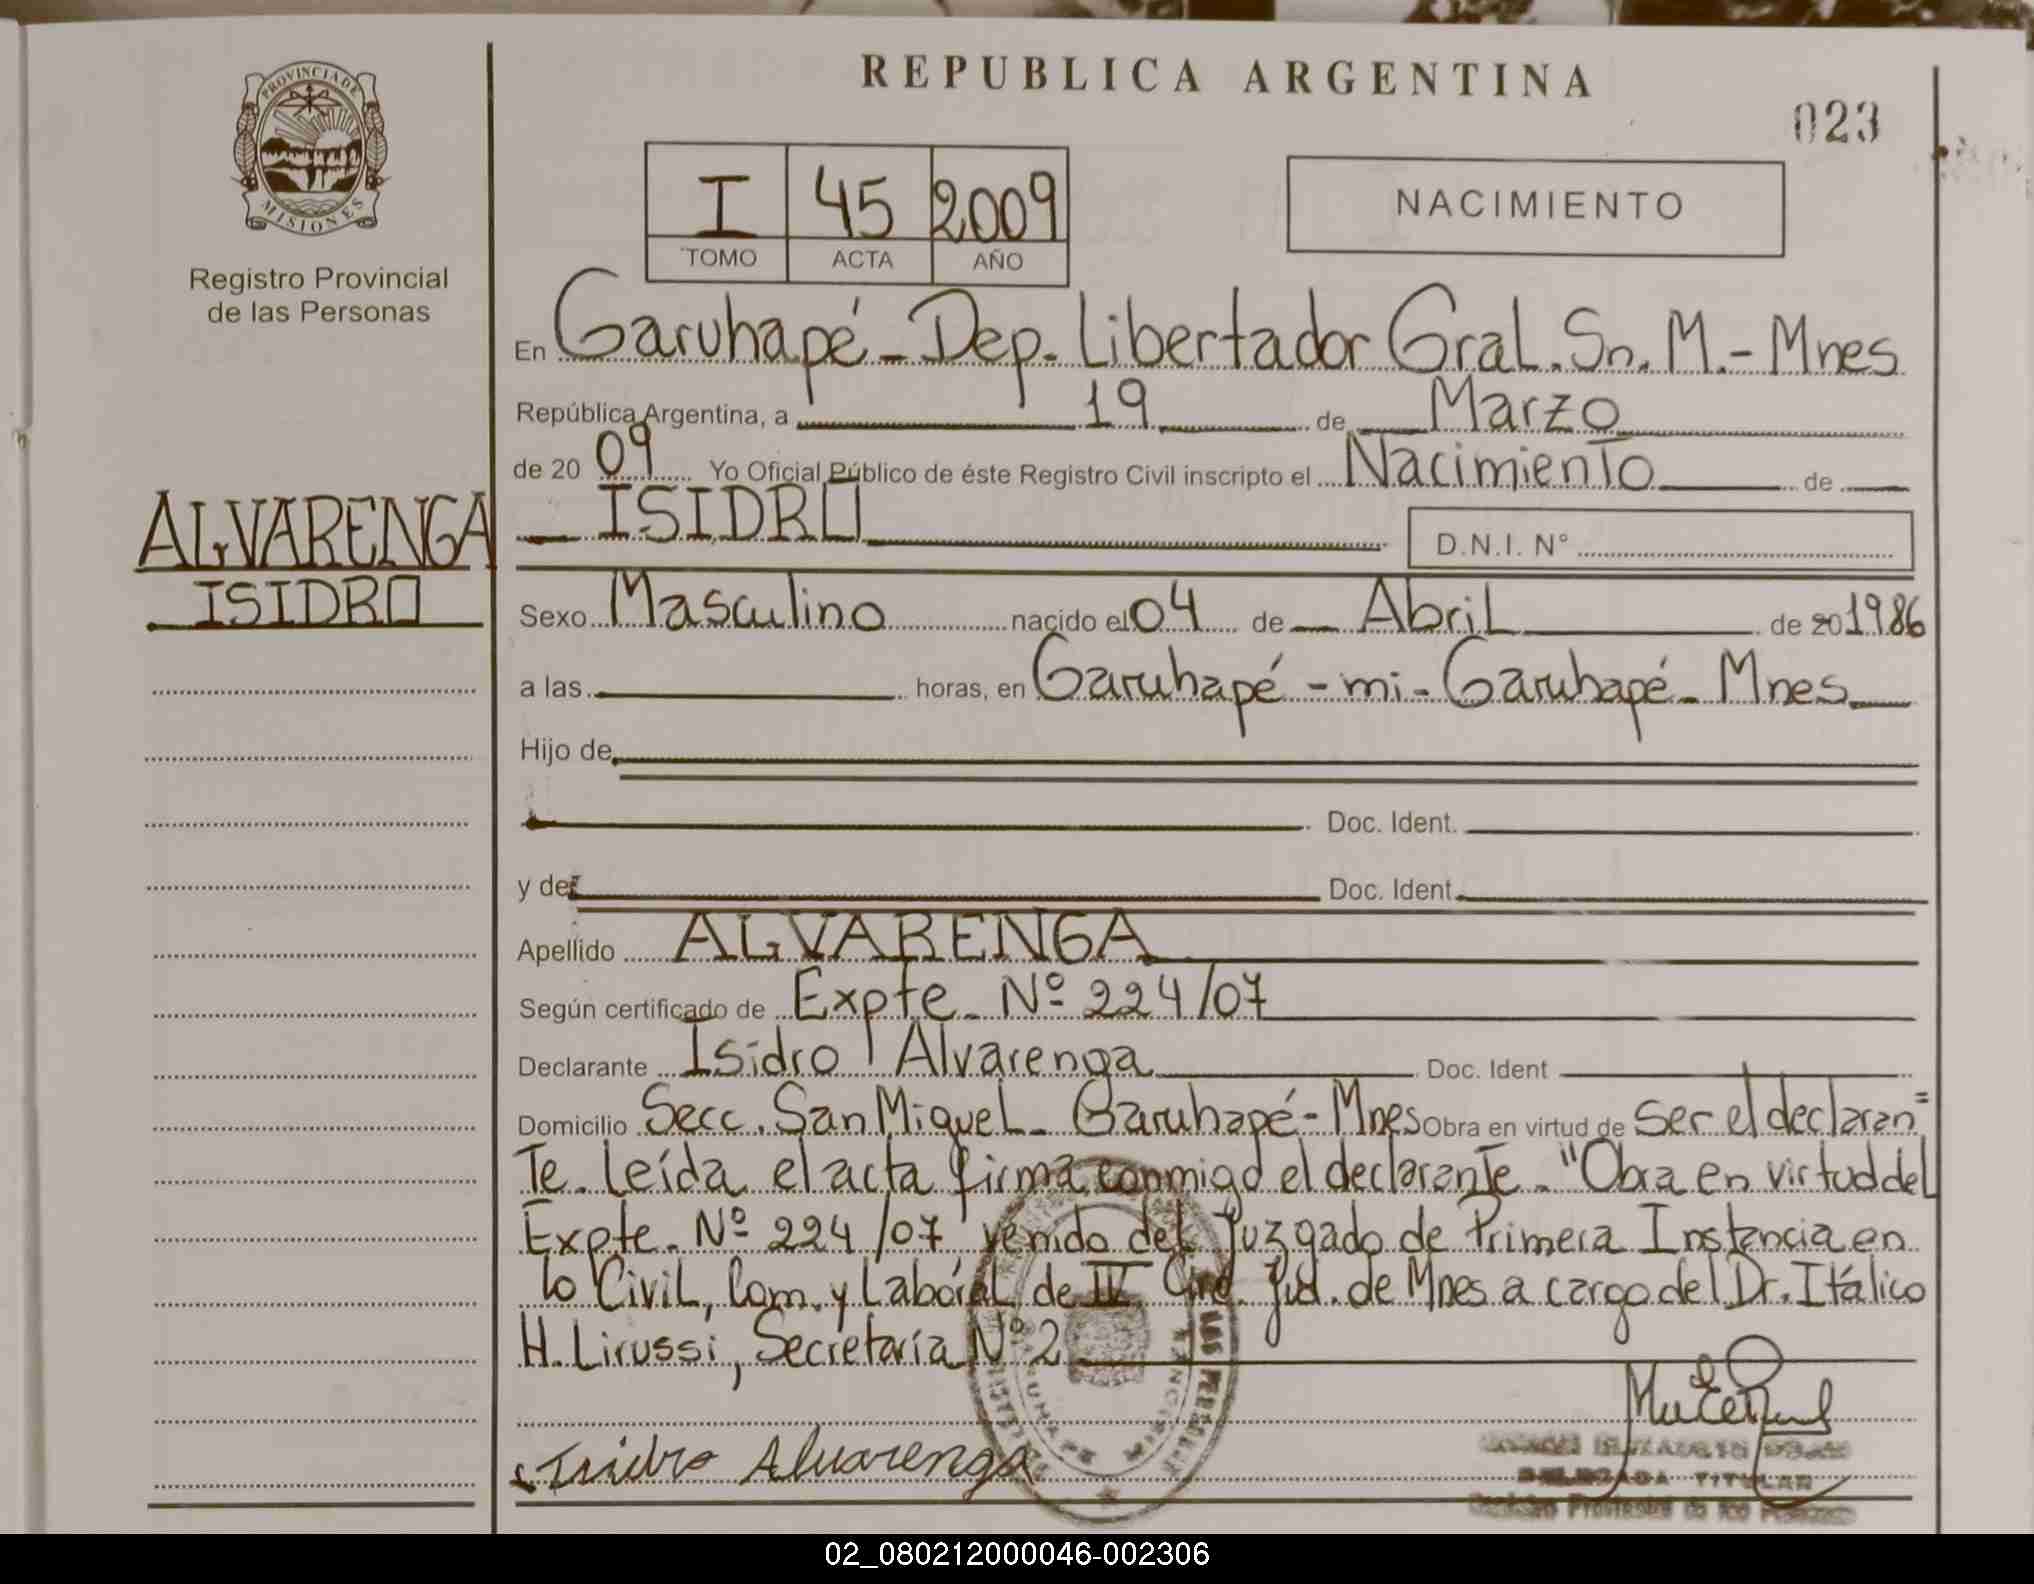 REPUBLICA ARGENTINA
023
PROVINCIA DE
MISIONES
Registro Provincial
de las Personas
I 45 2009
TOMO ACTA AÑO
NACIMIENTO
En Garuhapé - Dep. Libertador Gral. Sn. M. - Mnes
República Argentina, a 19 de Marzo
de 20 09 Yo Oficial Público de éste Registro Civil inscripto el Nacimiento de
ISIDRO
D.N.I. N°
ALVARENGA
ISIDRO
Sexo Masculino nacido el 04 de Abril de 20 1986
a las horas, en Garuhapé - mi - Garuhapé - Mnes
Hijo de
Doc. Ident.
y de Doc. Ident.
Apellido ALVARENGA
Según certificado de Expte. Nº 224/07
Declarante Isidro Alvarenga Doc. Ident
Domicilio Secc. San Miguel - Garuhapé - Mnes Obra en virtud de ser el declaran=
te. Leída el acta firma conmigo el declarante. "Obra en virtud del
Expte. Nº 224/07 venido del Juzgado de Primera Instancia en
lo Civil, Com. y Laboral de IV Circ. Jud. de Mnes a cargo del Dr. Itálico
H. Lirussi, Secretaría Nº 2
Isidro Alvarenga
DELEGADA TITULAR
Registro Provincial de las Personas
02_080212000046-002306